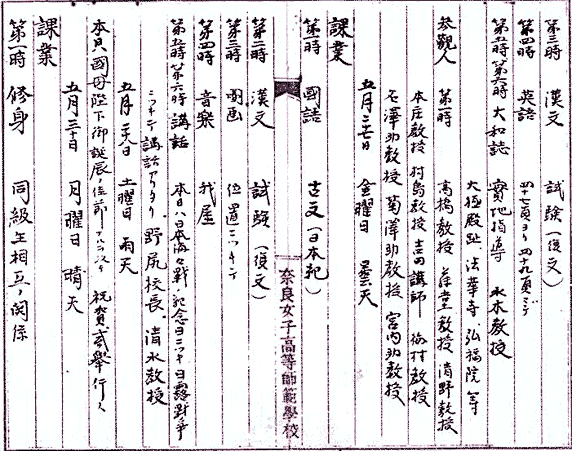 第三時 漢文 試験(復文)
第四時 英語 四十七頁ヨリ四十九頁マデ
第五時第六時 大和誌 實地指導 水木教授
大極殿趾、法華寺 弘福院等
参観人 第一時 高橋教授 藤堂教授 清野教授
本庄教授 村島教授 吉田講師 徐村教授
石澤助教授 菊澤助教授 宮内助教授
五月二十七日 金曜日 曇天
課業
第一時 國語 古文(日本紀)
奈良女子高等師範學校
第二時 漢文 試験(復文)
第三時 圖画 位置ニツキテ
第四時 音樂 我屋
第五時第六時 講話 本日ハ日本海々戰記念日ニツキ日露戰爭
ニツキテ講話アリタリ 野尻校長、清水教授
五月二十八日 土曜日 雨天
本日國母陛下御誕辰ノ佳節ナルニヨリ 祝賀式擧行ス
五月三十日 月曜日 晴天
課業
第一時 修身 同級生相互ノ関係